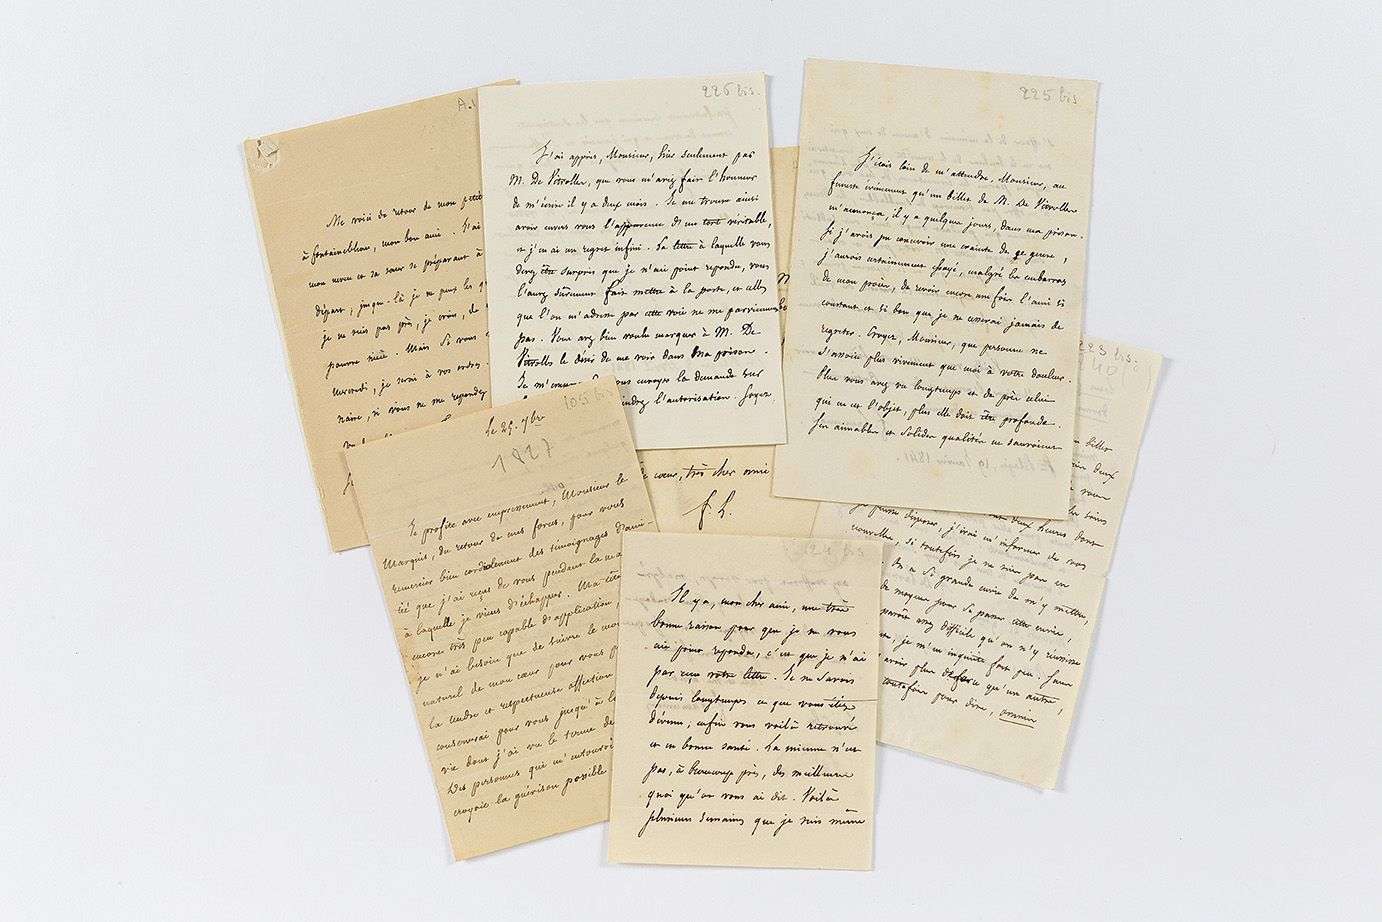 A.
Me voici de retour de mon petit
à fontainebleau, mon bon ami. J'ai
mon neveu et sa sœur se préparant à
départ; jusque-là je ne peux les
je ne suis pas près, je crois, de
pauvre mère. Mais si vous
mercredi, je serai à vos ordres
naire, si vous ne me repondez
226 bis.
J'ai appris, Monsieur, hier seulement par
M. De Vitrolles, que vous m'aviez fait l'honneur
de m'écrire il y a deux mois. Je me trouve ainsi
avoir envers vous l'apparence d'un tort véritable,
et j'en ai un regret infini. La lettre à laquelle vous
devez être surpris que je n'aie point repondu, vous
l'aurez sûrement fait mettre à la poste, et celles
que l'on m'adresse par cette voie ne me parviennent
pas. Vous avez bien voulu marquer à M. De
Vitrolles le désir de me voir dans ma prison.
Je m' vous envoyer la demande sur
l'autorisation. Soyez
225 bis
J'étais loin de m'attendre, Monsieur, au
funeste événement qu'un billet de M. De Vitrolles
m'annonça, il y a quelques jours, dans ma prison.
Si j'avois pu concevoir une crainte de ce genre,
j'aurois certainement essayé, malgré les embarras
de mon procès, de revoir encore une fois l'ami si
constant et si bon que je ne cesserai jamais de
regretter. Croyez, Monsieur, que personne ne
s'associe plus vivement que moi à votre douleur.
Plus vous avez vu longtemps et de près celui
qui en est l'objet, plus elle doit être profonde.
Ses aimables et solides qualités ne sauroient
Ste Pélagie, 19 Janvier 1841.
223 bis.
billet
deux
vous
deux heures dont
disposer, j'irai m'informer de vos
nouvelles, si toutefois je ne suis pas en
On a si grande envie de m'y mettre,
de moyens pour se passer cette envie,
paroît assez difficile qu'on n'y réussisse
, je m'en inquiète fort peu.
avoir plus défense qu'un autre,
toutefois pour dire, omnia
le 29. 7bre
1827
105 bis
Je profite avec empressement, Monsieur le
Marquis, du retour de mes forces, pour vous
remercier bien cordialement des témoignages d'ami-
tié que j'ai reçus de vous pendant la ma
à laquelle je viens d'échapper. Ma tête
encore très peu capable d'application,
je n'ai besoin que de suivre le mou
naturel de mon cœur pour vous
la tendre et respectueuse affection
conserverai pour vous jusqu'à la
vie dont j'ai vu le terme de
Des personnes qui m'entouroi
croyoit la guérison possible
cœur, très cher amie
f. L.
Il y a, mon cher ami, une très
bonne raison pour que je ne vous
aie point repondu, c'est que je n'ai
pas reçu votre lettre. Je ne savois
depuis longtemps ce que vous étiez
devenu; enfin vous voilà retrouvé
et en bonne santé. La mienne n'est
pas, à beaucoup près, des meilleures
quoi qu'on vous ai dit. Voilà
plusieurs semaines que je suis même